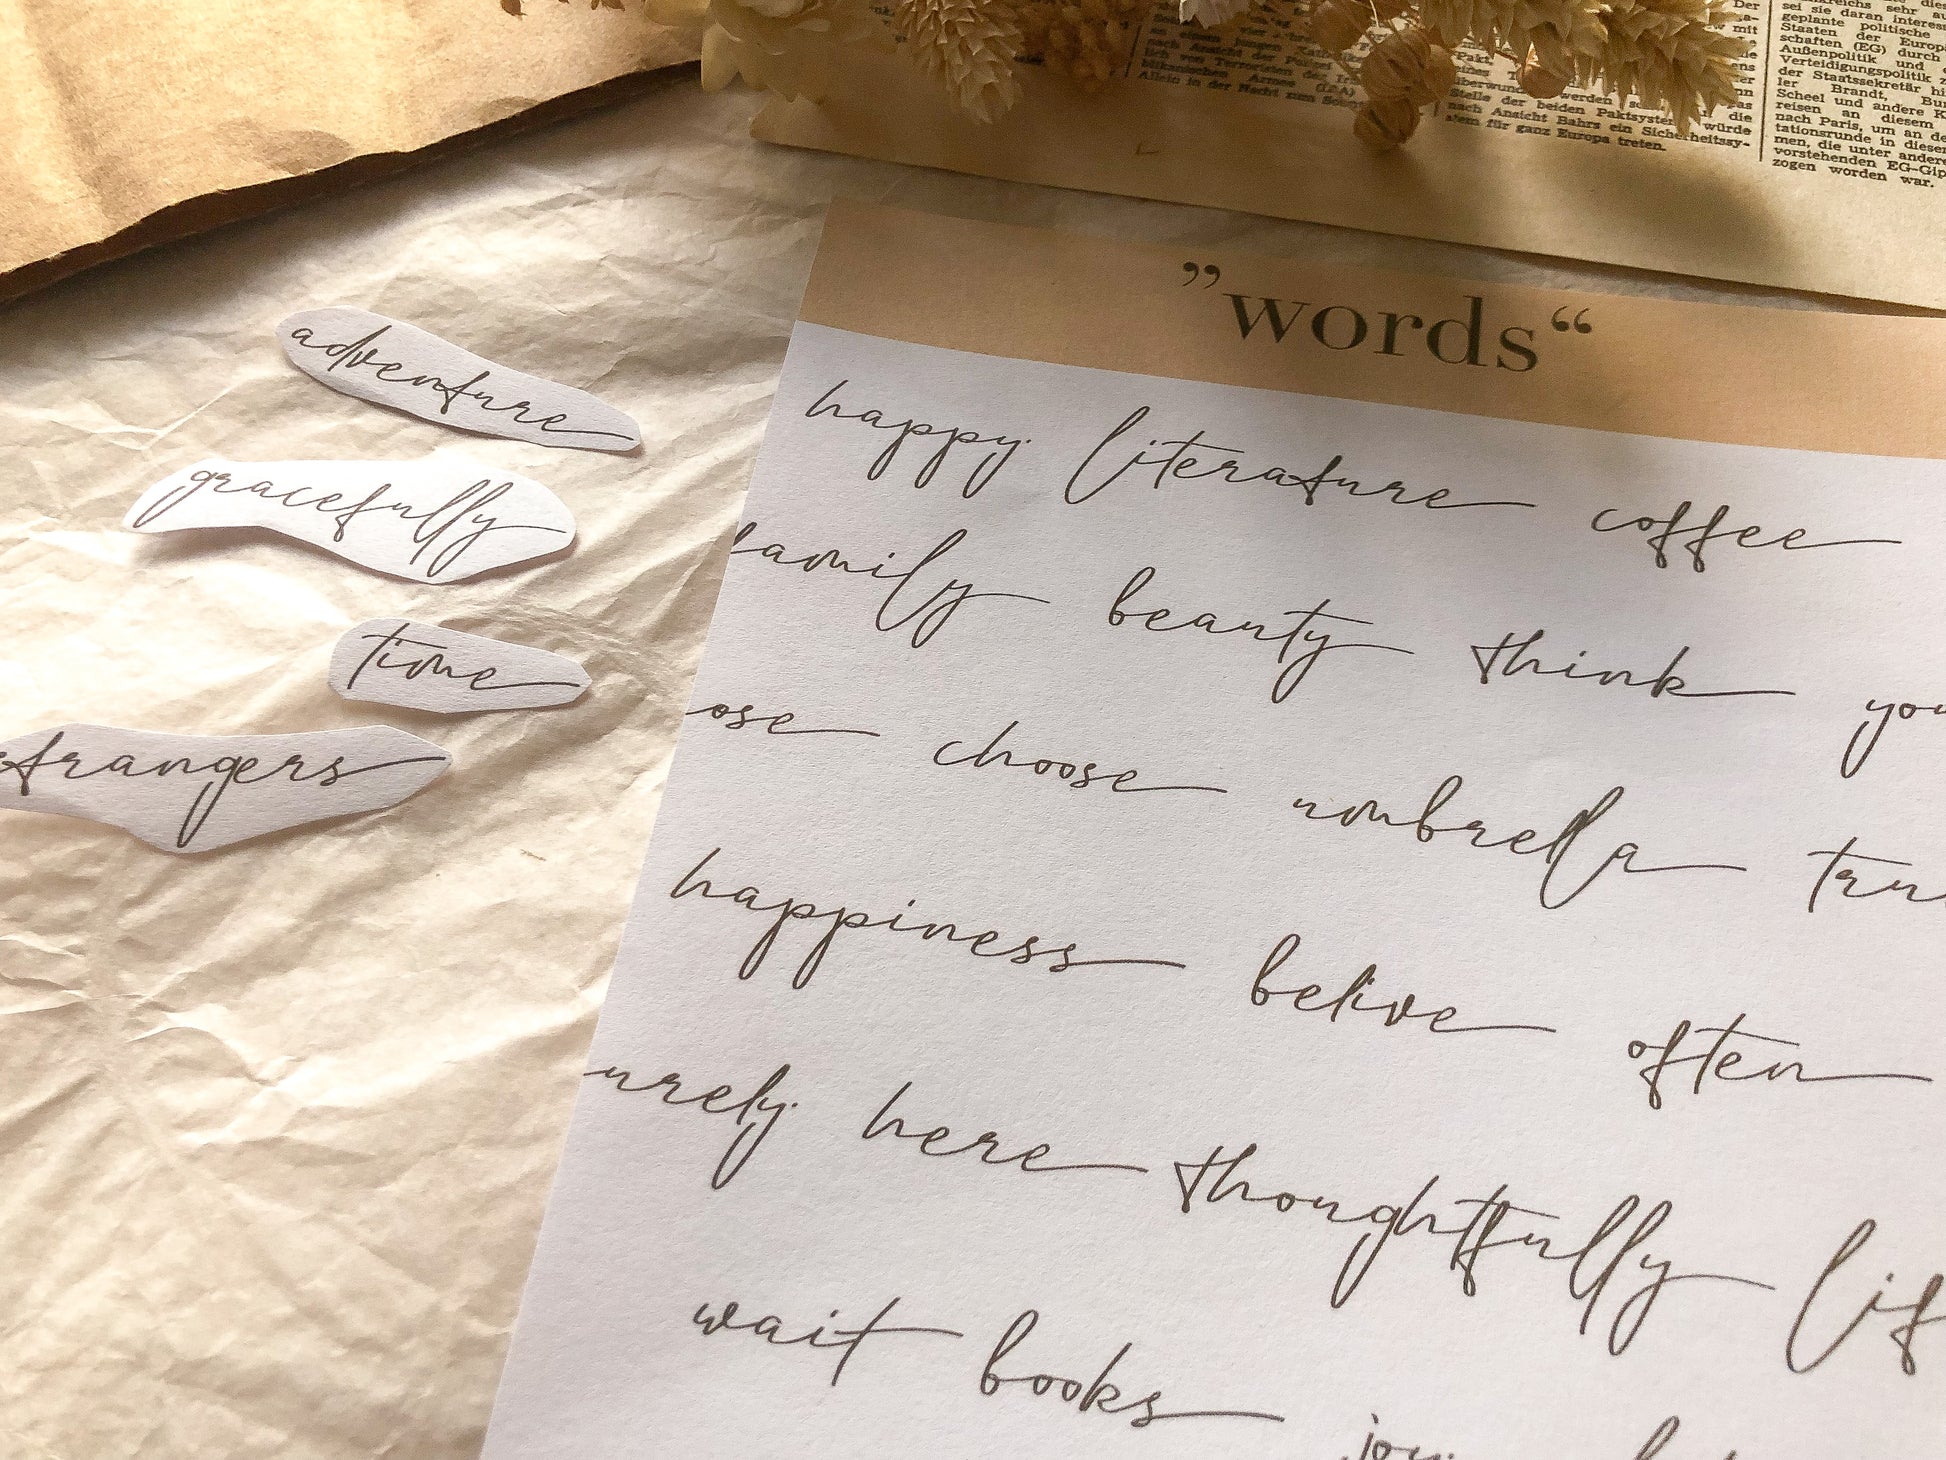 adventure
gracefully
time
strangers
”words“
happy literature coffee
family beauty think you
ose choose umbrella tru
happiness belive often
urely here thoughtfully lif
wait books joy
nach Ansicht der Polizei
blikanischen Armee (IRA)
Allein in der Nacht zum
Pakt.
werden
Stelle der beiden Paktsystem würde die
nach Ansicht Bahrs ein Sicherheitssy-
stem für ganz Europa treten.
sei sie daran interes
geplante politische
Staaten der Europ
schaften (EG) durch
Außenpolitik und
Verteidigungspolitik z
der Staatssekretär hi
ler Brandt, Bu
Scheel und andere K
reisen an diesem
nach Paris, um an de
tationsrunde in diesem
men, die unter andere
vorstehenden EG-Gip
zogen worden war.